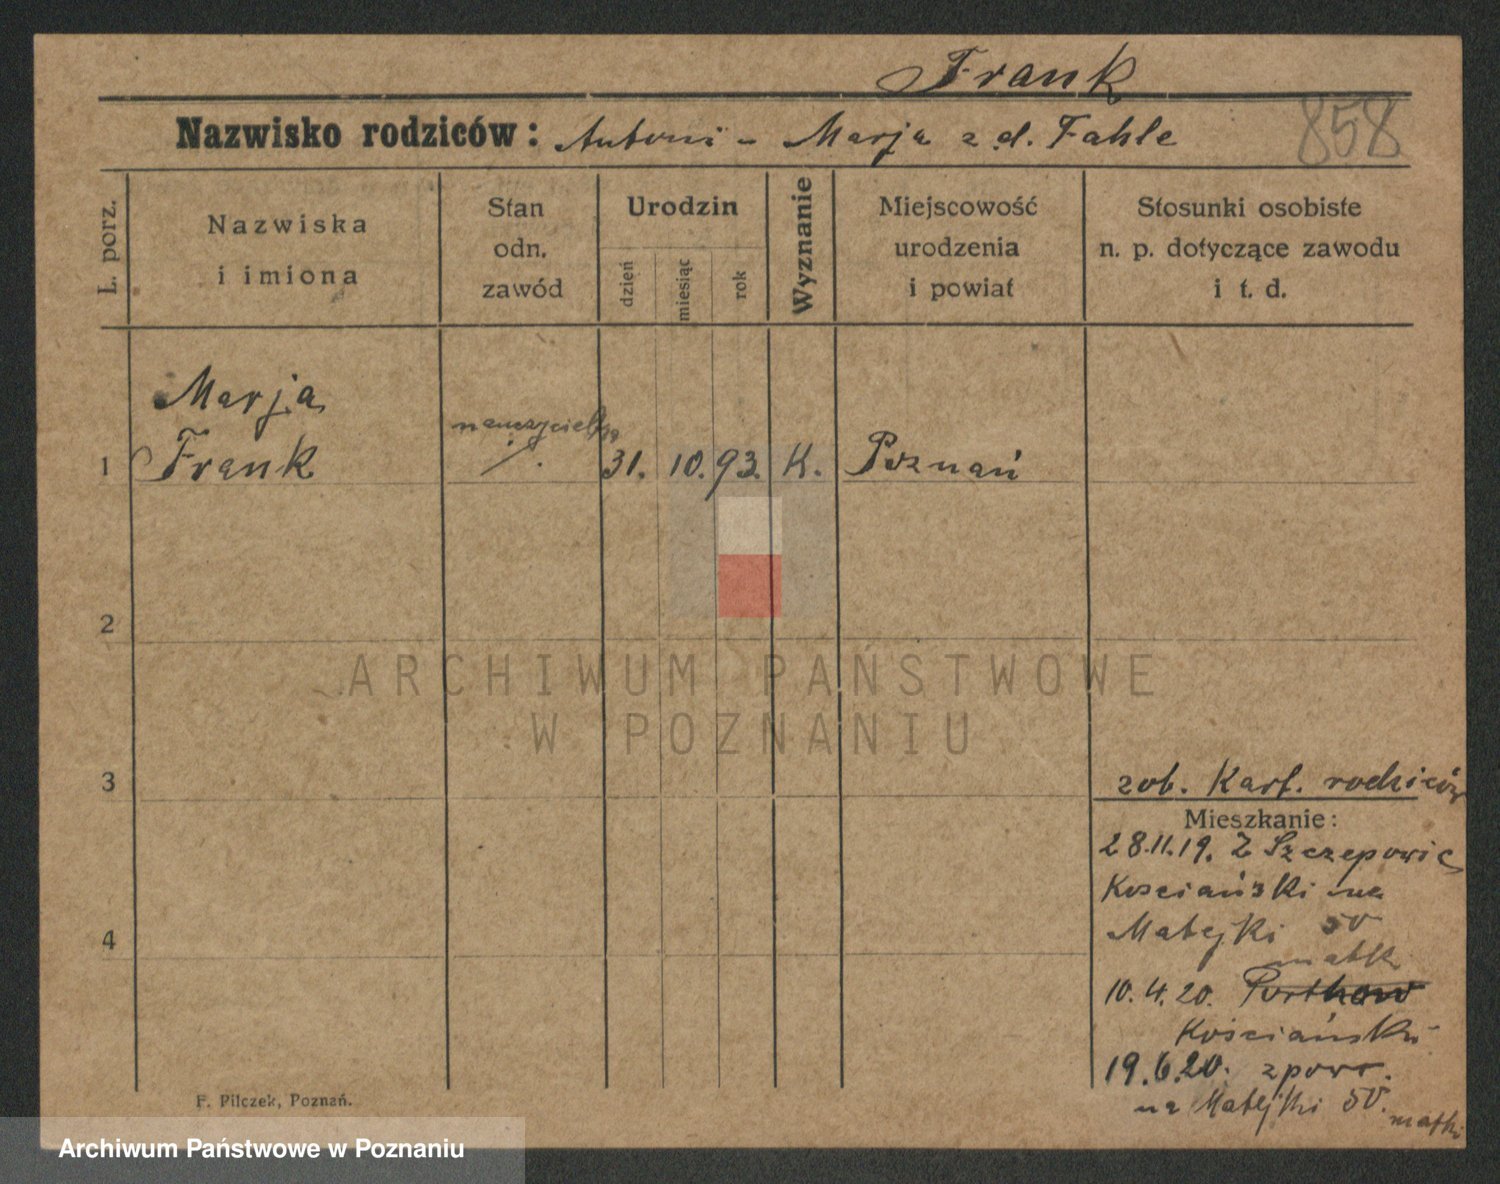 Frank
Nazwisko rodziców: Antoni - Marja z d. Fahle
858
L. porz.
Nazwiska
i imiona
Stan
odn.
zawód
Urodzin
dzień
miesiąc
rok
Wyznanie
Miejscowość
urodzenia
i powiat
Stosunki osobiste
n. p. dotyczące zawodu
i t. d.
Marja
nauczycielka
1 Frank ./. 31. 10. 93. K. Poznań
2
ARCHIWUM PAŃSTWOWE
W POZNANIU
3
zob. Kart. rodziców
Mieszkanie:
28.11.19. Z Szczepowic
Kościański na
4
Matejki 50
matk
10.4.20.
Kościański
19.6.20. zpowr.
na Matejki 50. matki
F. Pilczek, Poznań.
Archiwum Państwowe w Poznaniu